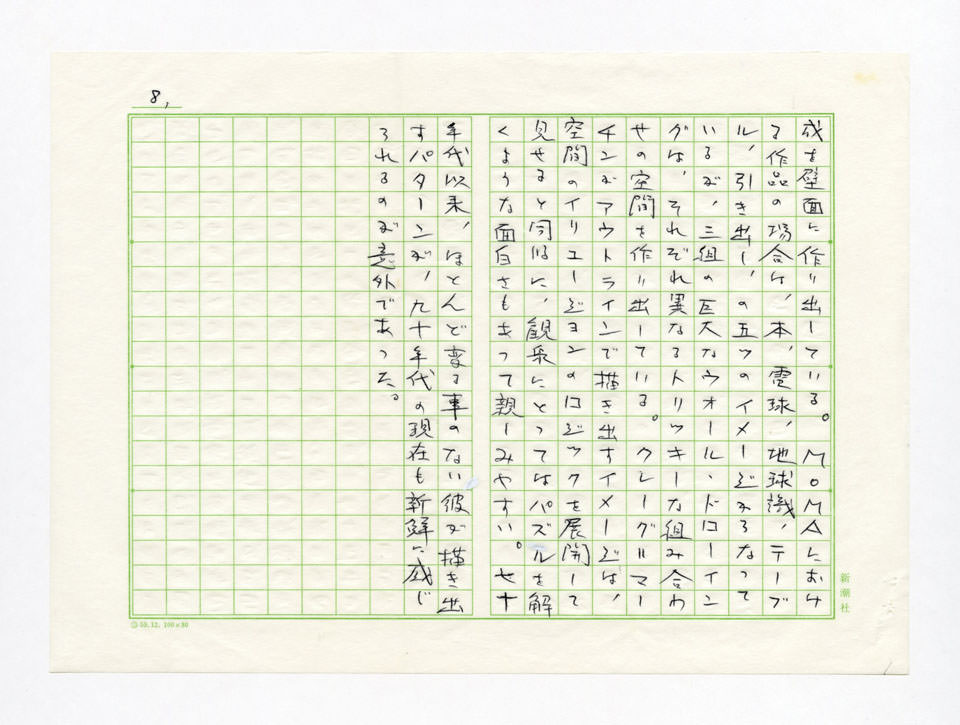 8,
成を壁面に作り出している。MOMAにおけ
る作品の場合は、本、電球、地球議、テーブ
ル、引き出し、の五ツのイメージからなって
いるが、三組の巨大なウオール・ドローイン
グは、それぞれ異なるトリッキーな組み合わ
せの空間を作り出している。クレーグ=マー
チンがアウトラインで描き出すイメージは、
空間のイリュージョンのロジックを展開して
見せると同時に、観衆にとってはパズルを解
くような面白さもあって親しみやすい。七十
年代以来、ほとんど変る事のない彼が描き出
すパターンが、九十年代の現在も新鮮に感じ
られるのが意外であった。
新潮社
59.12. 100×80